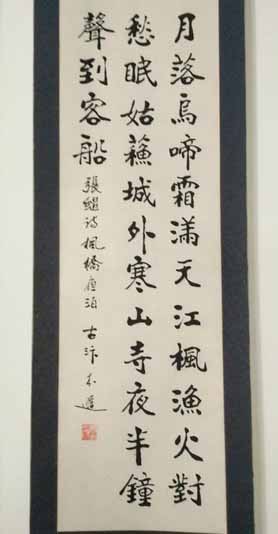 月落烏啼霜滿天江楓漁火對
愁眠姑蘇城外寒山寺夜半鐘
聲到客船
張繼詩楓橋夜泊 古汴